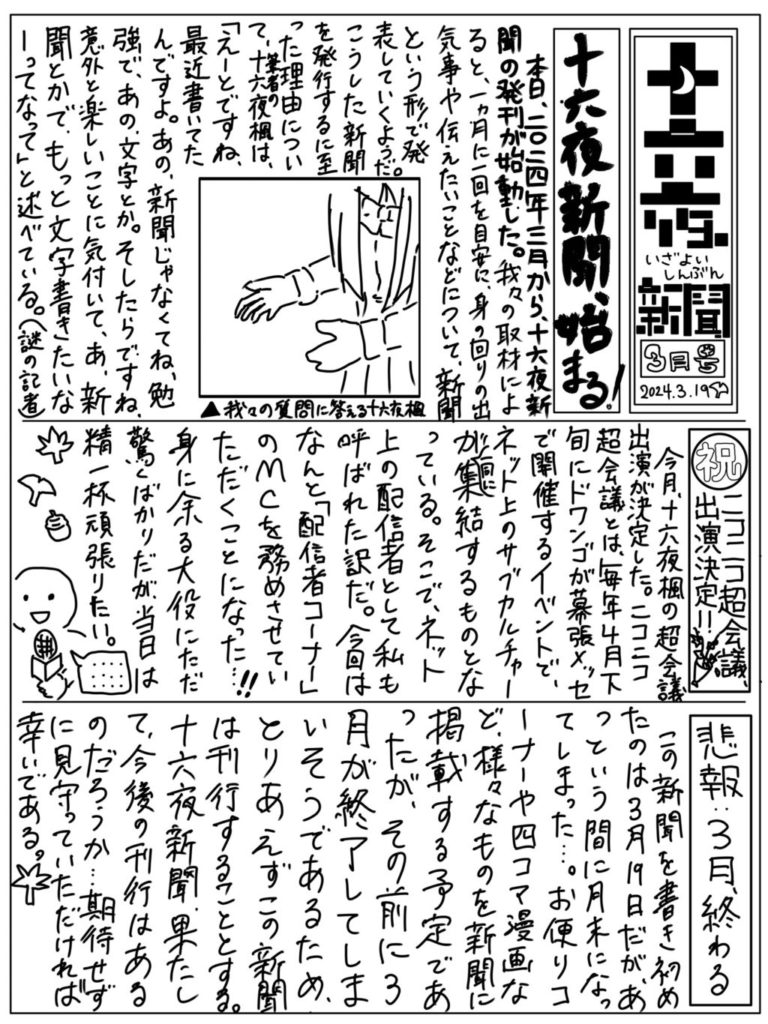 十六夜新聞
いざよい
しんぶん
3月号
2024.3.19
十六夜新聞、始まる!
本日、二〇二四年三月から、十六夜新
聞の発刊が始動した。我々の取材によ
ると、一ヵ月に一回を目安に、身の回りの出
気事や伝えたいことなどについて、新聞
という形で発
表していくようだ。
こうした新聞
を発行するに至
った理由につい
て、筆者の十六夜楓は、
「えーとですね、
最近書いてた
んですよ。あの、新聞じゃなくてね、勉
強で、あの、文字とか。そしたらですね、
意外と楽しいことに気付いて、あ、新
聞とかで、もっと文字書きたいな
ーってなって」と述べている。(謎の記者)
▲我々の質問に答える十六夜楓
祝
ニコニコ超会議、
出演決定!!
今月、十六夜楓の超会議
出演が決定した。ニコニコ
超会議とは、毎年4月下
旬にドワンゴが幕張メッセ
で開催するイベントで、
ネット上のサブカルチャー
が一同に集結するものとな
っている。そこで、ネット
上の配信者として私も
呼ばれた訳だ。今回は
なんと「配信者コーナー」
のMCを務めさせてい
ただくことになった…!!
身に余る大役にただ
驚くばかりだが、当日は
精一杯頑張りたい。
悲報:3月、終わる
この新聞を書き初め
たのは3月19日だが、あ
っという間に月末になっ
てしまった…。お便りコ
ーナーや四コマ漫画な
ど、様々なものを新聞に
掲載する予定であ
ったが、その前に3
月が終了してしま
いそうであるため、
とりあえずこの新聞
は刊行することとする。
十六夜新聞、果たし
て、今後の刊行はある
のだろうか…期待せず
に見守っていただければ
幸いである。